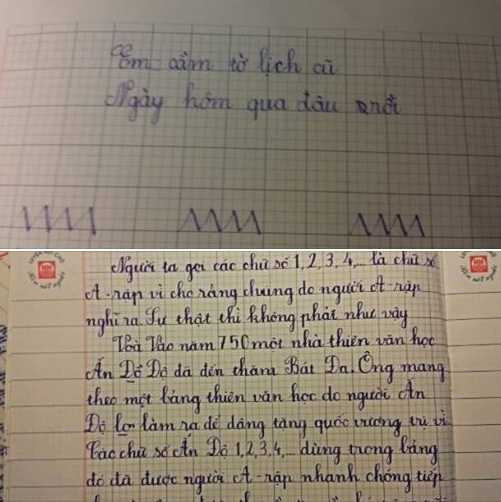 Em cầm tờ lịch cũ
Ngày hôm qua đâu rồi
Người ta gọi các chữ số 1, 2, 3, 4,... là chữ số
A-rập vì cho rằng chúng do người A-rập
nghĩ ra. Sự thật thì không phải như vậy
Vào năm 750 một nhà thiên văn học
Ấn Độ đã đến thăm Bát Đa. Ông mang
theo một bảng thiên văn học do người Ấn
Độ làm ra để dâng tặng quốc vương trị vì.
Các chữ số Ấn Độ 1, 2, 3, 4,... dùng trong bảng
đó đã được người A-rập nhanh chóng tiếp